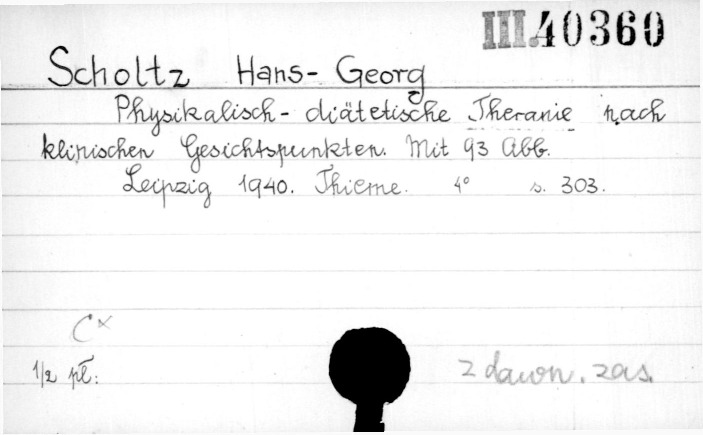 III.40360
Scholtz Hans-Georg
Physikalisch-diätetische Theranie nach
klinischen Gesichtspunkten. Mit 93 Abb.
Leipzig 1940. Thieme. 4° s. 303.
C×
1/2 pł: z dawn. zas.